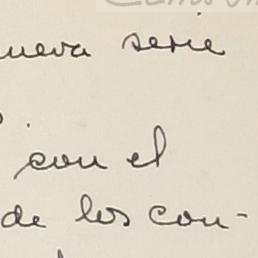 nueva serie
con el
de los con-